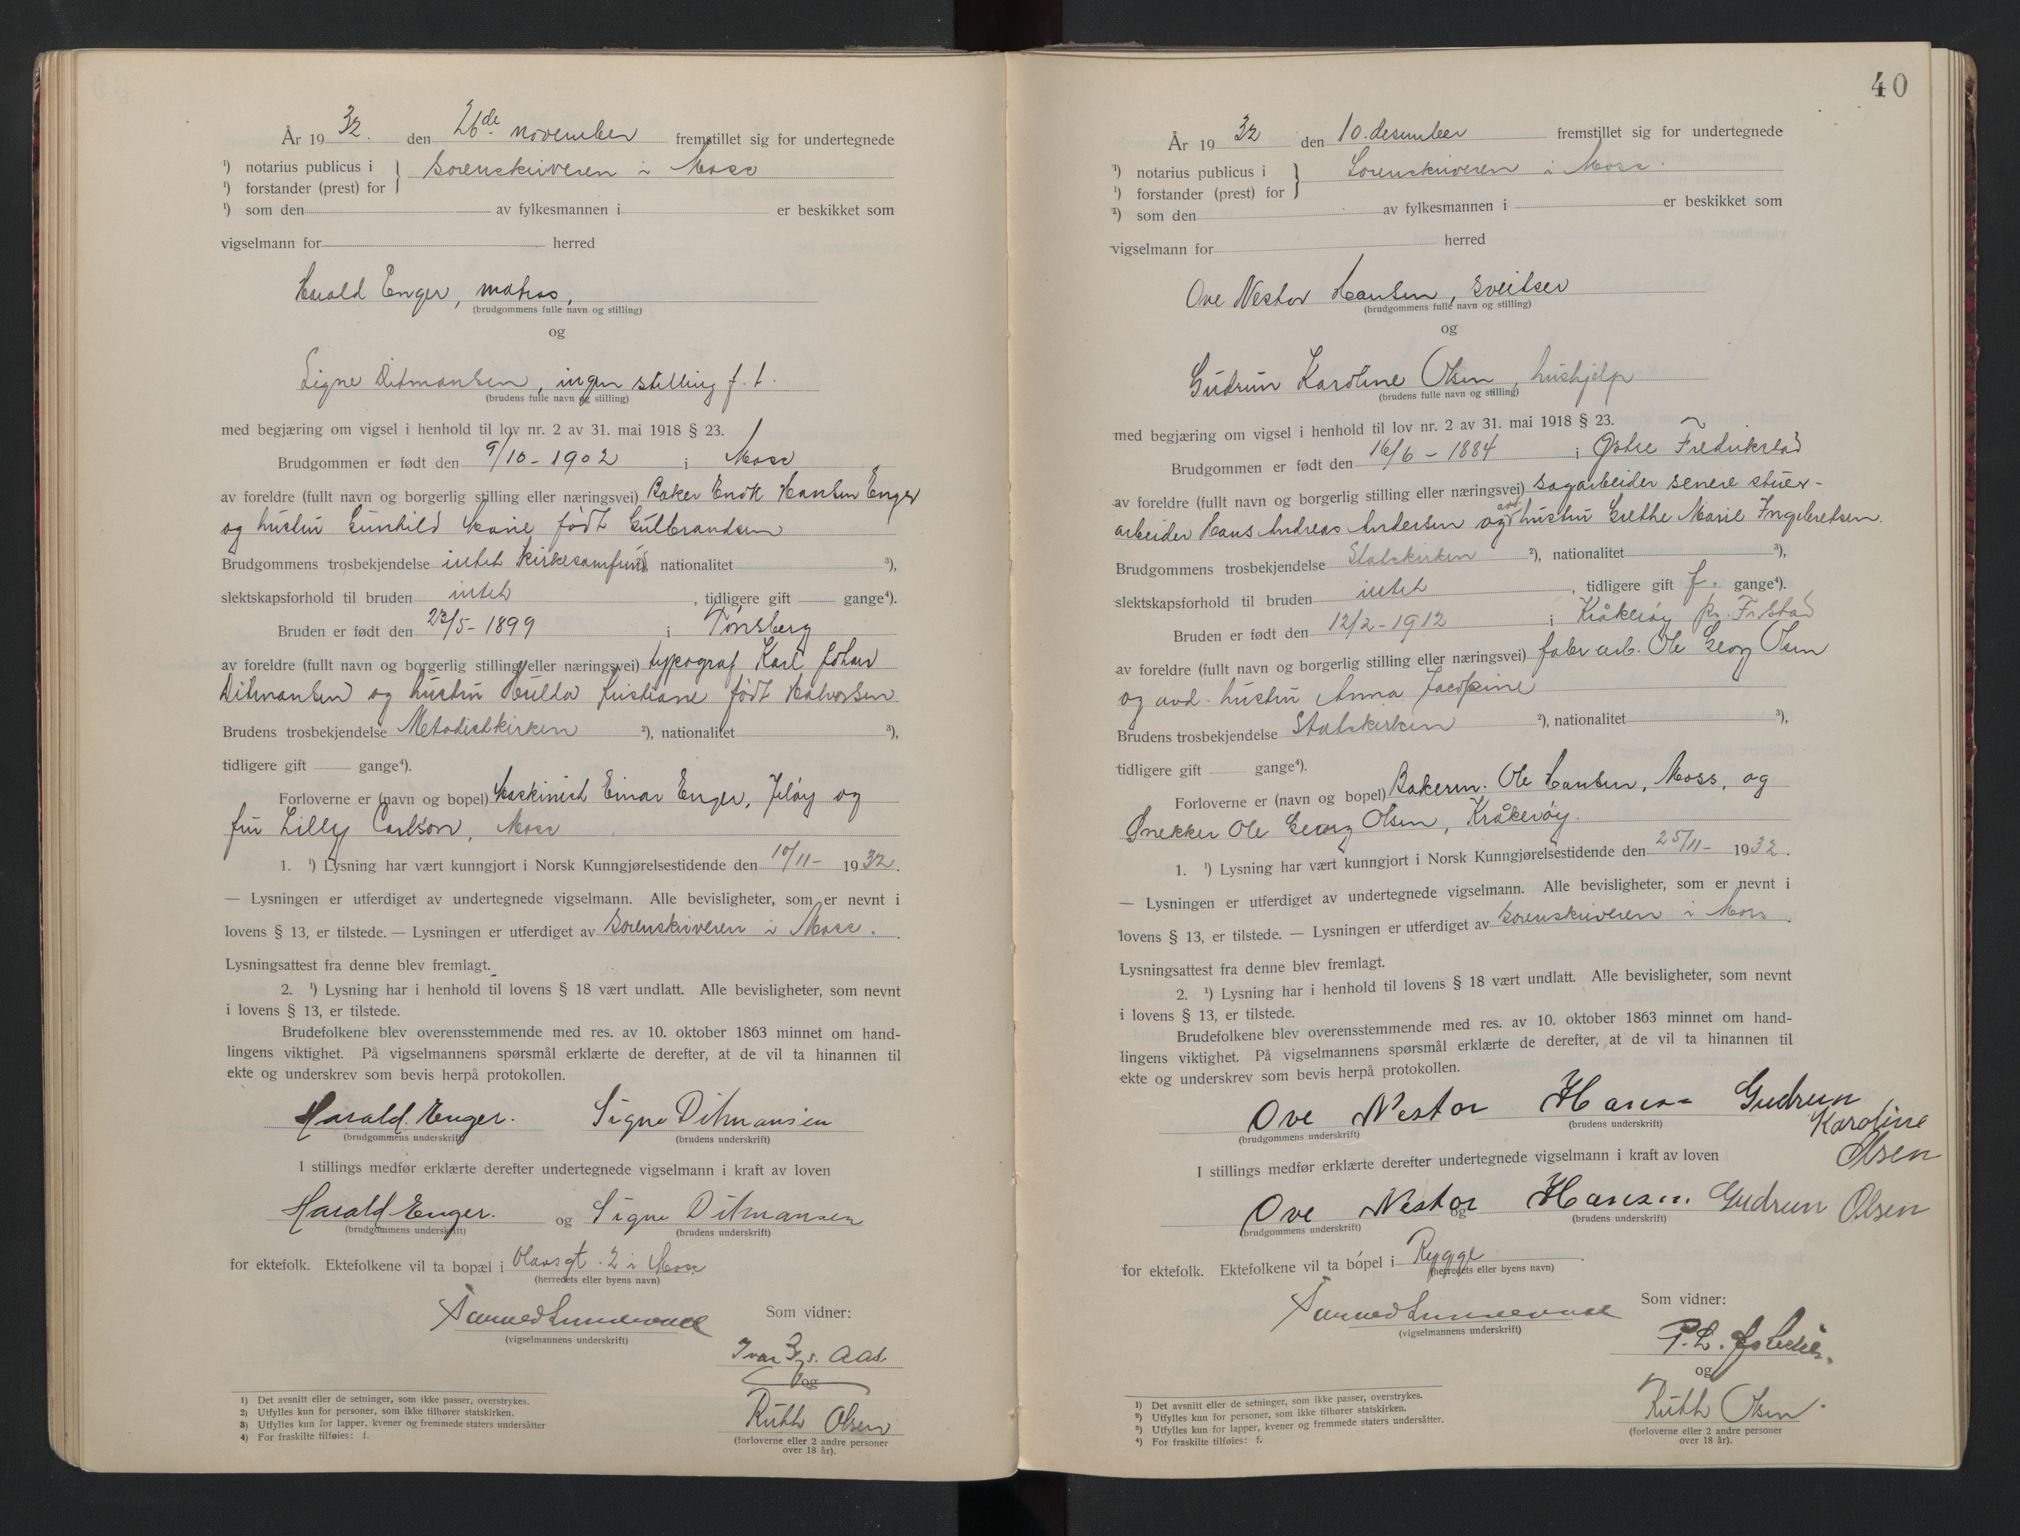 År 19 32. den 26de november fremstillet sig for undertegnede
¹) notarius publicus i } Sorenskriveren i Moss
¹) forstander (prest) for
¹) som den av fylkesmannen i er beskikket som
vigselmann for herred
Harald Enger, matros,
(brudgommens fulle navn og stilling)
og
Signe Ditmansen, ingen stilling f. t.
(brudens fulle navn og stilling)
med begjæring om vigsel i henhold til lov nr. 2 av 31. mai 1918 § 23.
Brudgommen er født den 9/10 - 1902 i Moss
av foreldre (fullt navn og borgerlig stilling eller næringsvei) Baker Hansen Enger
og hustru Gunhild Marie født Gulbrandsen
Brudgommens trosbekjendelse intet kirkesamfund, nationalitet ³),
slektskapsforhold til bruden intet, tidligere gift gange⁴).
Bruden er født den 23/5 - 1899 i Tønsberg
av foreldre (fullt navn og borgerlig stilling eller næringsvei) typograf Karl Johan
Ditmansen og hustru Hulla Kristiane født Halvorsen
Brudens trosbekjendelse Metodistkirken ²), nationalitet ³),
tidligere gift gange⁴).
Forloverne er (navn og bopel) Maskinist Einar Enger, Jeløy og
fru Lilly Carlson, Moss
1. ¹) Lysning har vært kunngjort i Norsk Kunngjørelsestidende den 10/11 - 1932.
— Lysningen er utferdiget av undertegnede vigselmann. Alle bevisligheter, som er nevnt i
lovens § 13, er tilstede. — Lysningen er utferdiget av Sorenskriveren i Moss.
Lysningsattest fra denne blev fremlagt.
2. ¹) Lysning har i henhold til lovens § 18 vært undlatt. Alle bevisligheter, som nevnt
i lovens § 13, er tilstede.
Brudefolkene blev overensstemmende med res. av 10. oktober 1863 minnet om hand-
lingens viktighet. På vigselmannens spørsmål erklærte de derefter, at de vil ta hinannen til
ekte og underskrev som bevis herpå protokollen.
Harald Enger. Signe Ditmansen
(brudgommens underskrift) (brudens underskrift)
I stillings medfør erklærte derefter undertegnede vigselmann i kraft av loven
Harald Enger. og Signe Ditmansen
(brudgommens underskrift) (brudens underskrift)
for ektefolk. Ektefolkene vil ta bopæl i Olavsgt. 2 i Moss
(herredets eller byens navn)
Som vidner:
(vigselmannens underskrift)
Ivar Aas
og
Ruth Olsen
(forloverne eller 2 andre personer
over 18 år).
1) Det avsnitt eller de setninger, som ikke passer, overstrykes.
2) Utfylles kun for personer, som ikke tilhører statskirken.
3) Utfylles kun for lapper, kvener og fremmede staters undersåtter
4) For fraskilte tilføies: f.
40
År 19 32 den 10. desember fremstillet sig for undertegnede
¹) notarius publicus i } Sorenskriveren i Moss.
¹) forstander (prest) for
²) som den av fylkesmannen i er beskikket som
vigselmann for herred
Ove Nestor Hansen, sveitser
(brudgommens fulle navn og stilling)
og
Gudrun Karoline Olsen, hushjelp
(brudens fulle navn og stilling)
med begjæring om vigsel i henhold til lov nr. 2 av 31. mai 1918 § 23.
Brudgommen er født den 16/6 - 1884 i Østre Fredrikstad
av foreldre (fullt navn og borgerlig stilling eller næringsvei) sagarbeider senere stuer-
arbeider Hans Andreas Andersen og avd hustru Grethe Marie Ingebretsen.
Brudgommens trosbekjendelse Statskirken ²), nationalitet ³),
slektskapsforhold til bruden intet, tidligere gift f. gange⁴).
Bruden er født den 12/2 - 1912 i Kråkerøy pr. Fr.stad
av foreldre (fullt navn og borgerlig stilling eller næringsvei) fabr arb. Ole Georg Olsen
og avd. hustru Anna Jacobine
Brudens trosbekjendelse Statskirken ²), nationalitet ³),
tidligere gift gange⁴).
Forloverne er (navn og bopel) Bakerm. Ole Hansen, Moss, og
Snekker Ole Georg Olsen, Kråkerøy.
1. ¹) Lysning har vært kunngjort i Norsk Kunngjørelsestidende den 25/11 - 1932.
— Lysningen er utferdiget av undertegnede vigselmann. Alle bevisligheter, som er nevnt i
lovens § 13, er tilstede. — Lysningen er utferdiget av Sorenskriveren i Moss.
Lysningsattest fra denne blev fremlagt.
2. ¹) Lysning har i henhold til lovens § 18 vært undlatt. Alle bevisligheter, som nevnt
i lovens § 13, er tilstede.
Brudefolkene blev overensstemmende med res. av 10. oktober 1863 minnet om hand-
lingens viktighet. På vigselmannens spørsmål erklærte de derefter, at de vil ta hinannen til
ekte og underskrev som bevis herpå protokollen.
Ove Nestor Hansen Gudrun
Karoline
Olsen
(brudgommens underskrift) (brudens underskrift)
I stillings medfør erklærte derefter undertegnede vigselmann i kraft av loven
Ove Nestor og Hansen. Gudrun Olsen
(brudgommens underskrift) (brudens underskrift)
for ektefolk. Ektefolkene vil ta bopel i Rygge.
(herredets eller byens navn)
Som vidner:
(vigselmannens underskrift)
P. L.
og
Ruth Olsen.
(forloverne eller 2 andre personer
over 18 år).
¹) Det avsnitt eller de setninger, som ikke passer, overstrykes.
²) Utfylles kun for personer, som ikke tilhører statskirken.
³) Utfylles kun for lapper, kvener og fremmede staters undersåtter.
⁴) For fraskilte tilføies: f.